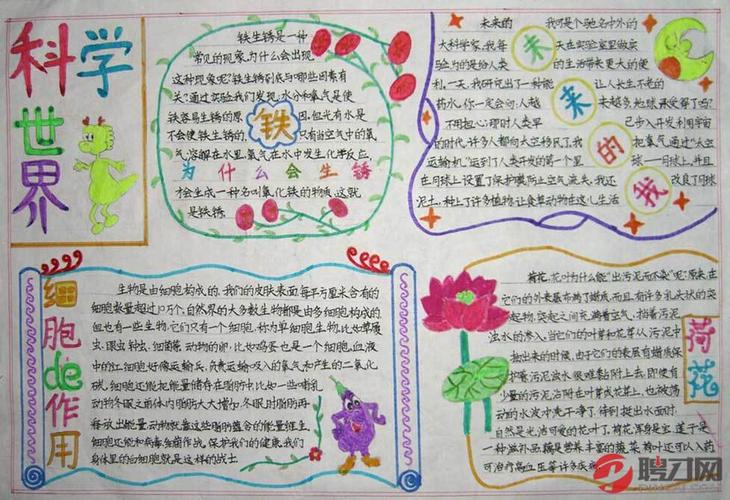 科学
世界
铁生锈是一种
常见的现象,为什么会出现
这种现象呢?铁生锈到底与哪些因素有
关?通过实验我们发现:水分和氧气是使
铁容易生锈的原因,但光有水是
铁
不会使铁生锈的,只有当空气中的氧
气溶解在水里,氧气在水中发生化学反应,
为什么会生锈
才会生成一种名叫氧化铁的物质,这就
是铁锈。
未来的我可是个驰名中外的
大科学家,我每天在实验室里做实
验,为的是给人类的生活带来更大的便
利。一天,我研究出了一种能让人长生不老的
药水,你一定会问:人越来越多地球承受得了吗?
不用担心,那时人类早已步入开发利用宇宙
的时代,许多人都向太空移民了。我把氧气通过“太空
运输机”运到了人类开发的第一个星球——月球上,并且
在月球上设置了保护膜防止空气流失,我还改良了月球
泥土,种上了许多植物,让食草动物在这儿生活
未来的我
细胞de作用
生物是由细胞构成的,我们的皮肤表面每平方厘米含有的
细胞数量超过10万个。自然界的大多数生物都是由多细胞构成的,
但也有一些生物,它们只有一个细胞,称为单细胞生物,比如草履
虫、眼虫、钟虫、细菌等。动物的卵,比如鸡蛋也是一个细胞。血液
中的红细胞好像运输兵,负责运输吸入的氧气和产生的二氧化
碳。细胞还能把能量储存在脂肪中,比如一些哺乳
动物冬眠之前体内脂肪大大增加,冬眠时脂肪再
释放出能量,动物就靠这些脂肪蕴含的能量维生。
细胞还能和病毒细菌作战,保护我们的健康,我们
身体里的白细胞就是这样的战士。
荷花
荷花、花叶为什么能“出污泥而不染”呢?原来,在
它们的外表层布满了蜡质,而且有许多乳头状的突
起物,突起之间充满着空气,挡着污泥
浊水的渗入。当它们的叶芽和花芽从污泥中
抽出来的时候,由于它们的表层有蜡质保
护着,污泥浊水很难黏附上去,即使有
少量的污泥沾附在叶芽或花芽上,也被荡
动的水波冲洗干净了。待到挺出水面时,
自然是光洁可爱的花叶了。荷花浑身是宝,莲子是
一种滋补品,藕是营养丰富的蔬菜,荷叶还可以入药
可治疗高血压等许多疾病
聘才网